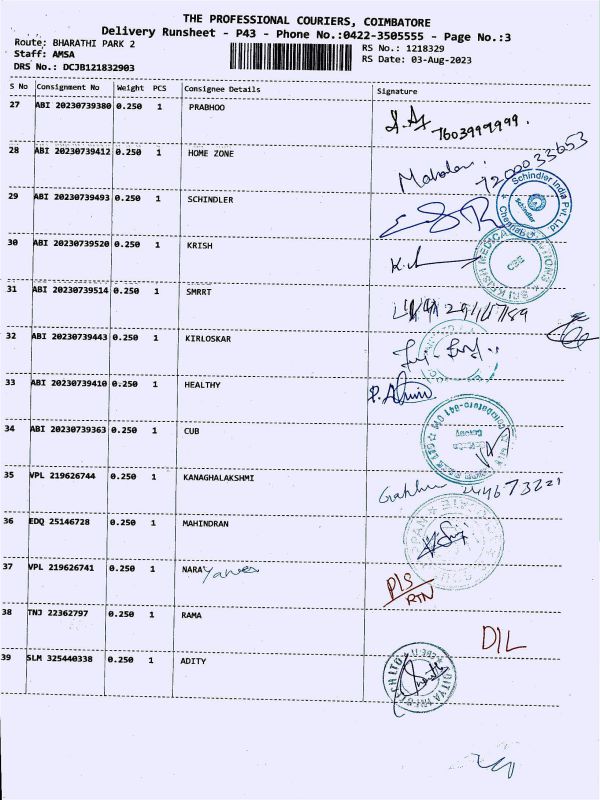 THE PROFESSIONAL COURIERS, COIMBATORE
Delivery Runsheet - P43 - Phone No.:0422-3505555 - Page No.:3
Route: BHARATHI PARK 2
RS No.: 1218329
Staff: AMSA
RS Date: 03-Aug-2023
DRS No.: DCJB121832903
S No Consignment No Weight PCS Consignee Details Signature
27 ABI 20230739380 0.250 1 PRABHOO 7603999999.
28 ABI 20230739412 0.250 1 HOME ZONE 7200033653
29 ABI 20230739493 0.250 1 SCHINDLER
Schindler India Pvt. Ltd
Schindler
30 ABI 20230739520 0.250 1 KRISH
CBE
31 ABI 20230739514 0.250 1 SMRRT
32 ABI 20230739443 0.250 1 KIRLOSKAR
33 ABI 20230739410 0.250 1 HEALTHY
34 ABI 20230739363 0.250 1 CUB
35 VPL 219626744 0.250 1 KANAGHALAKSHMI
36 EDQ 25146728 0.250 1 MAHINDRAN
37 VPL 219626741 0.250 1 NARAYanee
RTN
38 TNJ 22362797 0.250 1 RAMA
DIL
39 SLM 325440338 0.250 1 ADITY